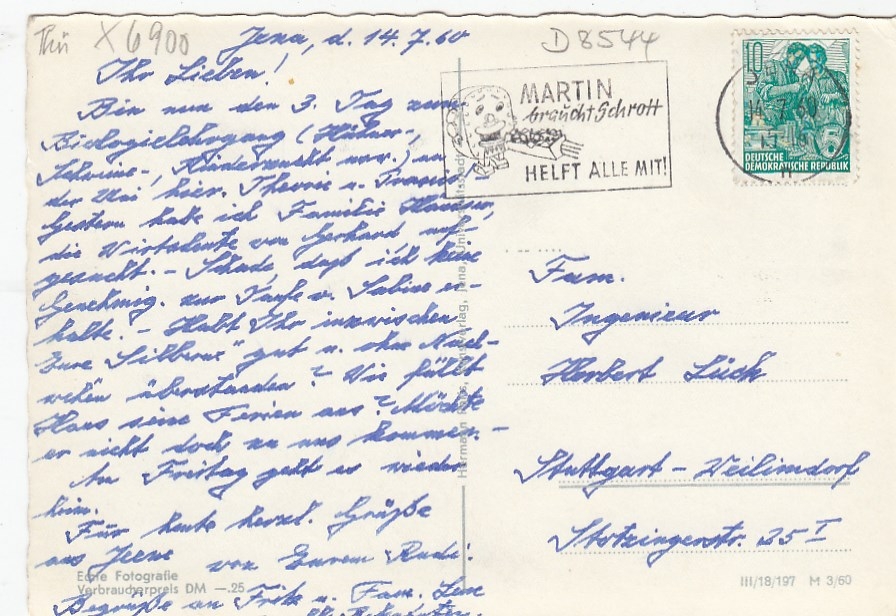 Thü X 6900
D 8544
Jena, d. 14.7.60
Ihr Lieben!
Bin nun den 3. Tag zum
Biologielehrgang (Hühner-,
Schweine-, Rinderzucht usw.) an
der Uni hier. Theorie u. Praxis.
Gestern habe ich Familie
die Wirtsleute von Gerhard auf-
gesucht. – Schade, daß ich keine
Genehmig. zur Taufe v. Sabine er-
halte. – Habt Ihr inzwischen
Eure „Silberne" gut u. ohne Nach-
wehen überstanden? Wie füllt
Hans seine Ferien aus? Möchte
er nicht doch zu uns kommen. –
Am Freitag geht es wieder
heim.
Für heute herzl. Grüße
aus Jena von Eurem Rudi!
Begrüße an Fritz u. Fam.
MARTIN
braucht Schrott
HELFT ALLE MIT!
14.-7.60
10
DEUTSCHE
DEMOKRATISCHE REPUBLIK
Fam.
Ingenieur
Herbert Lück
Stuttgart – Weilimdorf
Stotzingerstr. 25 I
Echte Fotografie
Verbraucherpreis DM —.25
III/18/197 M 3/60